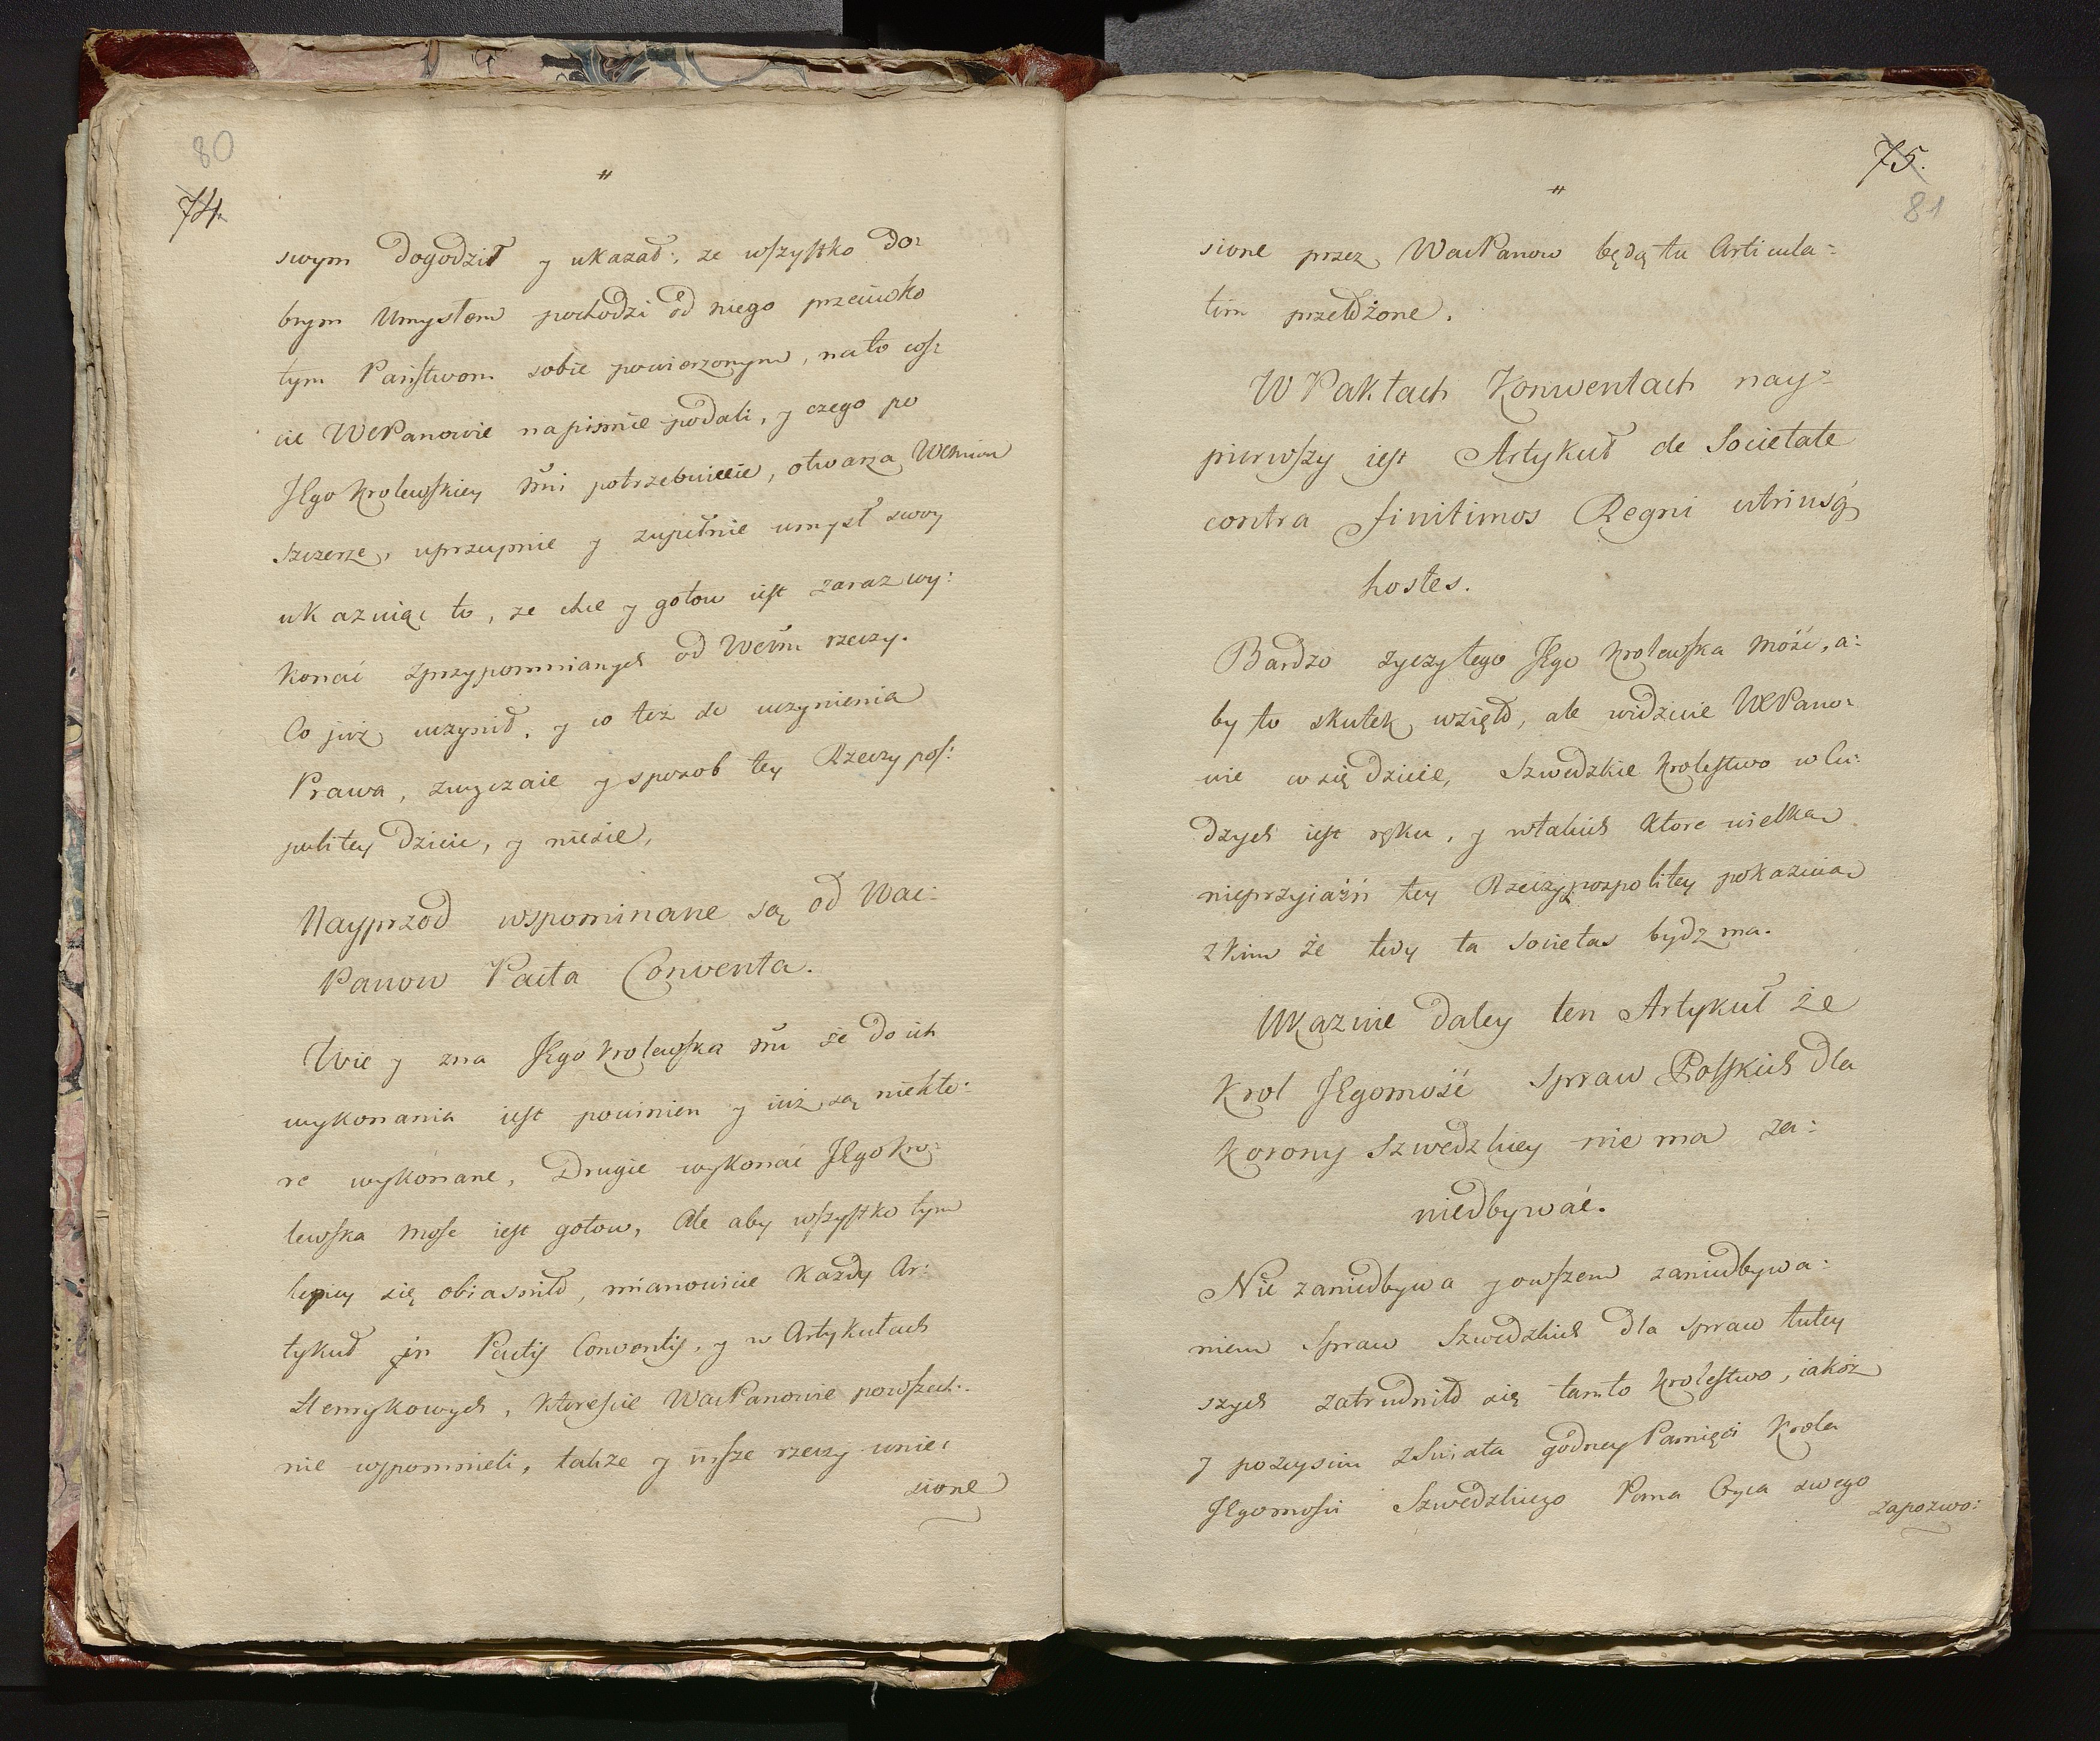 80
74.
swym dogodził y ukazał: ze wszystko do:
brym Umysłem pochodzi od niego przeciwko
tym Państwom sobie powierzonym, na to coś:
cie WPanowie na pismie podali, y czego po
JEgo Krolewskiey Mci potrzebuiecie, otwarza
szczerze, uprzeymie y zupełnie umysł swoy
ukazuiąc to, ze chce y gotow iest zaraz wy:
konać zprzypomnianych od rzeczy.
Co już uczynił, y co też do uczynienia
Prawa, zwyczaie y sposob tey Rzeczy pos:
politey y niesie,
Nayprzod wspominane są od Wac:
Panow Pacta Conventa.
Wie y zna JEgo Krolewska Mć że do ich
wykonania iest powinien y iuż są niekto:
re wykonane, Drugie wykonać JEgo Kro:
lewska Mość iest gotow, Ale aby wszystko tym
lepiey się obiasniło, mianowicie Każdy Ar:
tykuł in Pactis Conventis, y w Artykułach
Henrykowych, Ktoreście WacPanowie powszech:
nie wspomnieli, także y insze rzeczy wnie:
sione
75.
81
sione przez WacPanow będą tu Articula:
tim przełożone.
W Paktach Konwentach nay:
pierwszy iest Artykuł de Societate
contra finitimos Regni utriusq
hostes.
Bardzo zyczy tego JEgo Krolewska Mość, a:
by to skutek wzięło, ale widzicie WPano:
wie co się dzieie, Szwedzkie Krolestwo w Cu:
dzych iest ręku, y w takich Ktore wielką
nieprzyiaźń tey Rzeczypospolitey pokazuią
z Kim że tedy ta Societas bydz ma.
Ukazuie daley ten Artykuł że
Krol JEgomość spraw Polskich dla
Korony Szwedzkiey nie ma za:
niedbywać.
Nie zaniedbywa y owszem zaniedbywa:
niem Spraw Szwedzkich dla spraw tutey
szych zatrudniło się tamto Krolestwo, iakoż
y po zeysciu z Swiata godney Pamięci Krola
JEgomości Szwedzkiego Pana Oyca swego
zapozwo: